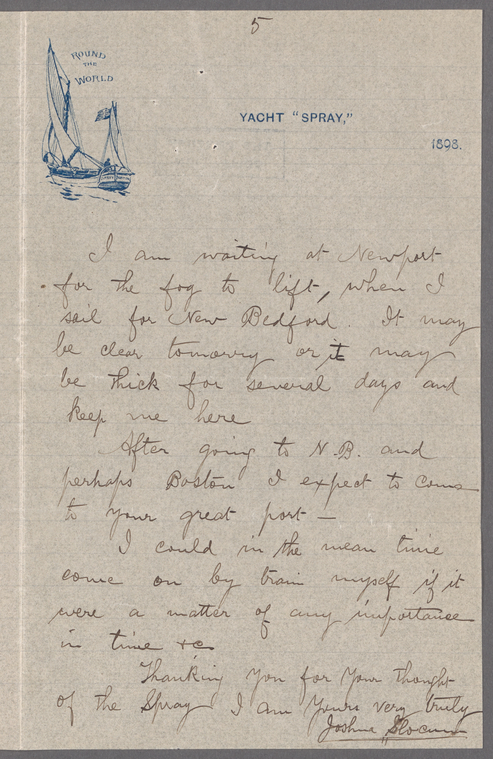 5
ROUND
THE
WORLD
YACHT "SPRAY,"
1898.
I am waiting at Newport
for the fog to lift, when I
sail for New Bedford. It may
be clear tomorry or it may
be thick for several days and
keep me here
After going to N.B. and
perhaps Boston I expect to come
to your great port —
I could in the mean time
come on by train myself if it
were a matter of any importance
in time &c
Thanking you for your thought
of the Spray I am yours very truly
Joshua Slocum